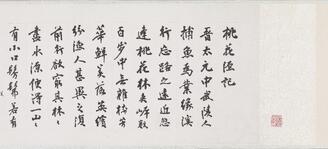 桃花源記
晉太元中武陵人
捕魚為業緣溪
行忘路之遠近忽
逢桃花林夾岸數
百步中無雜樹芳
華鮮美落英繽
紛漁人甚異之復
前行欲窮其林〻
盡水源便得一山〻
有小口髣髴若有